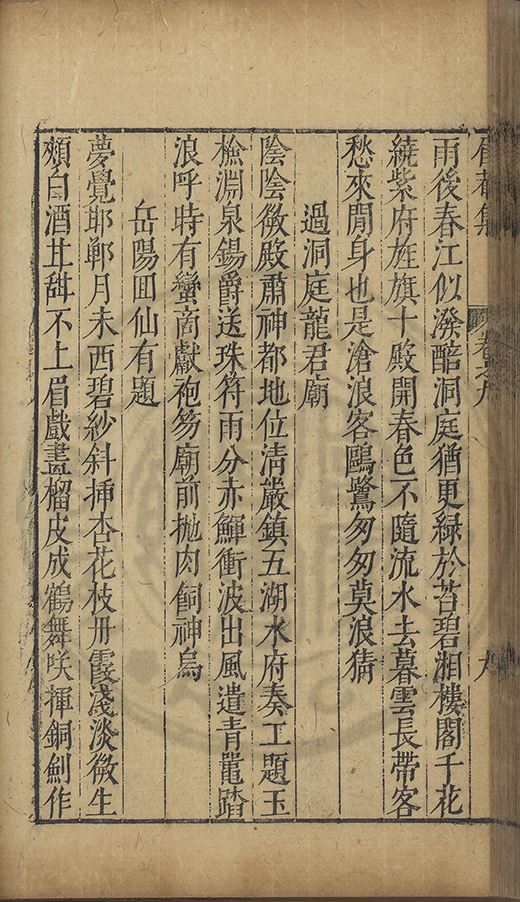 雨後春江似潑醅洞庭猶更綠於苔碧湘樓閣千花
繞紫府旌旗十殿開春色不隨流水去暮雲長帶客
愁來閒身也是滄浪客鷗鷺匆匆莫浪猜
過洞庭龍君廟
陰陰微殿肅神都地位清嚴鎮五湖水府奏工題玉
檢淵泉錫爵送珠符雨分赤鯶衝波出風遣青鼉踏
浪呼時有蠻商獻袍笏廟前拋肉飼神烏
岳陽回仙有題
夢覺邯鄲月未西碧紗斜揷杏花枝丹霞淺淡微生
頰白酒甘甜不上眉戲畫榴皮成鶴舞咲揮銅劍作